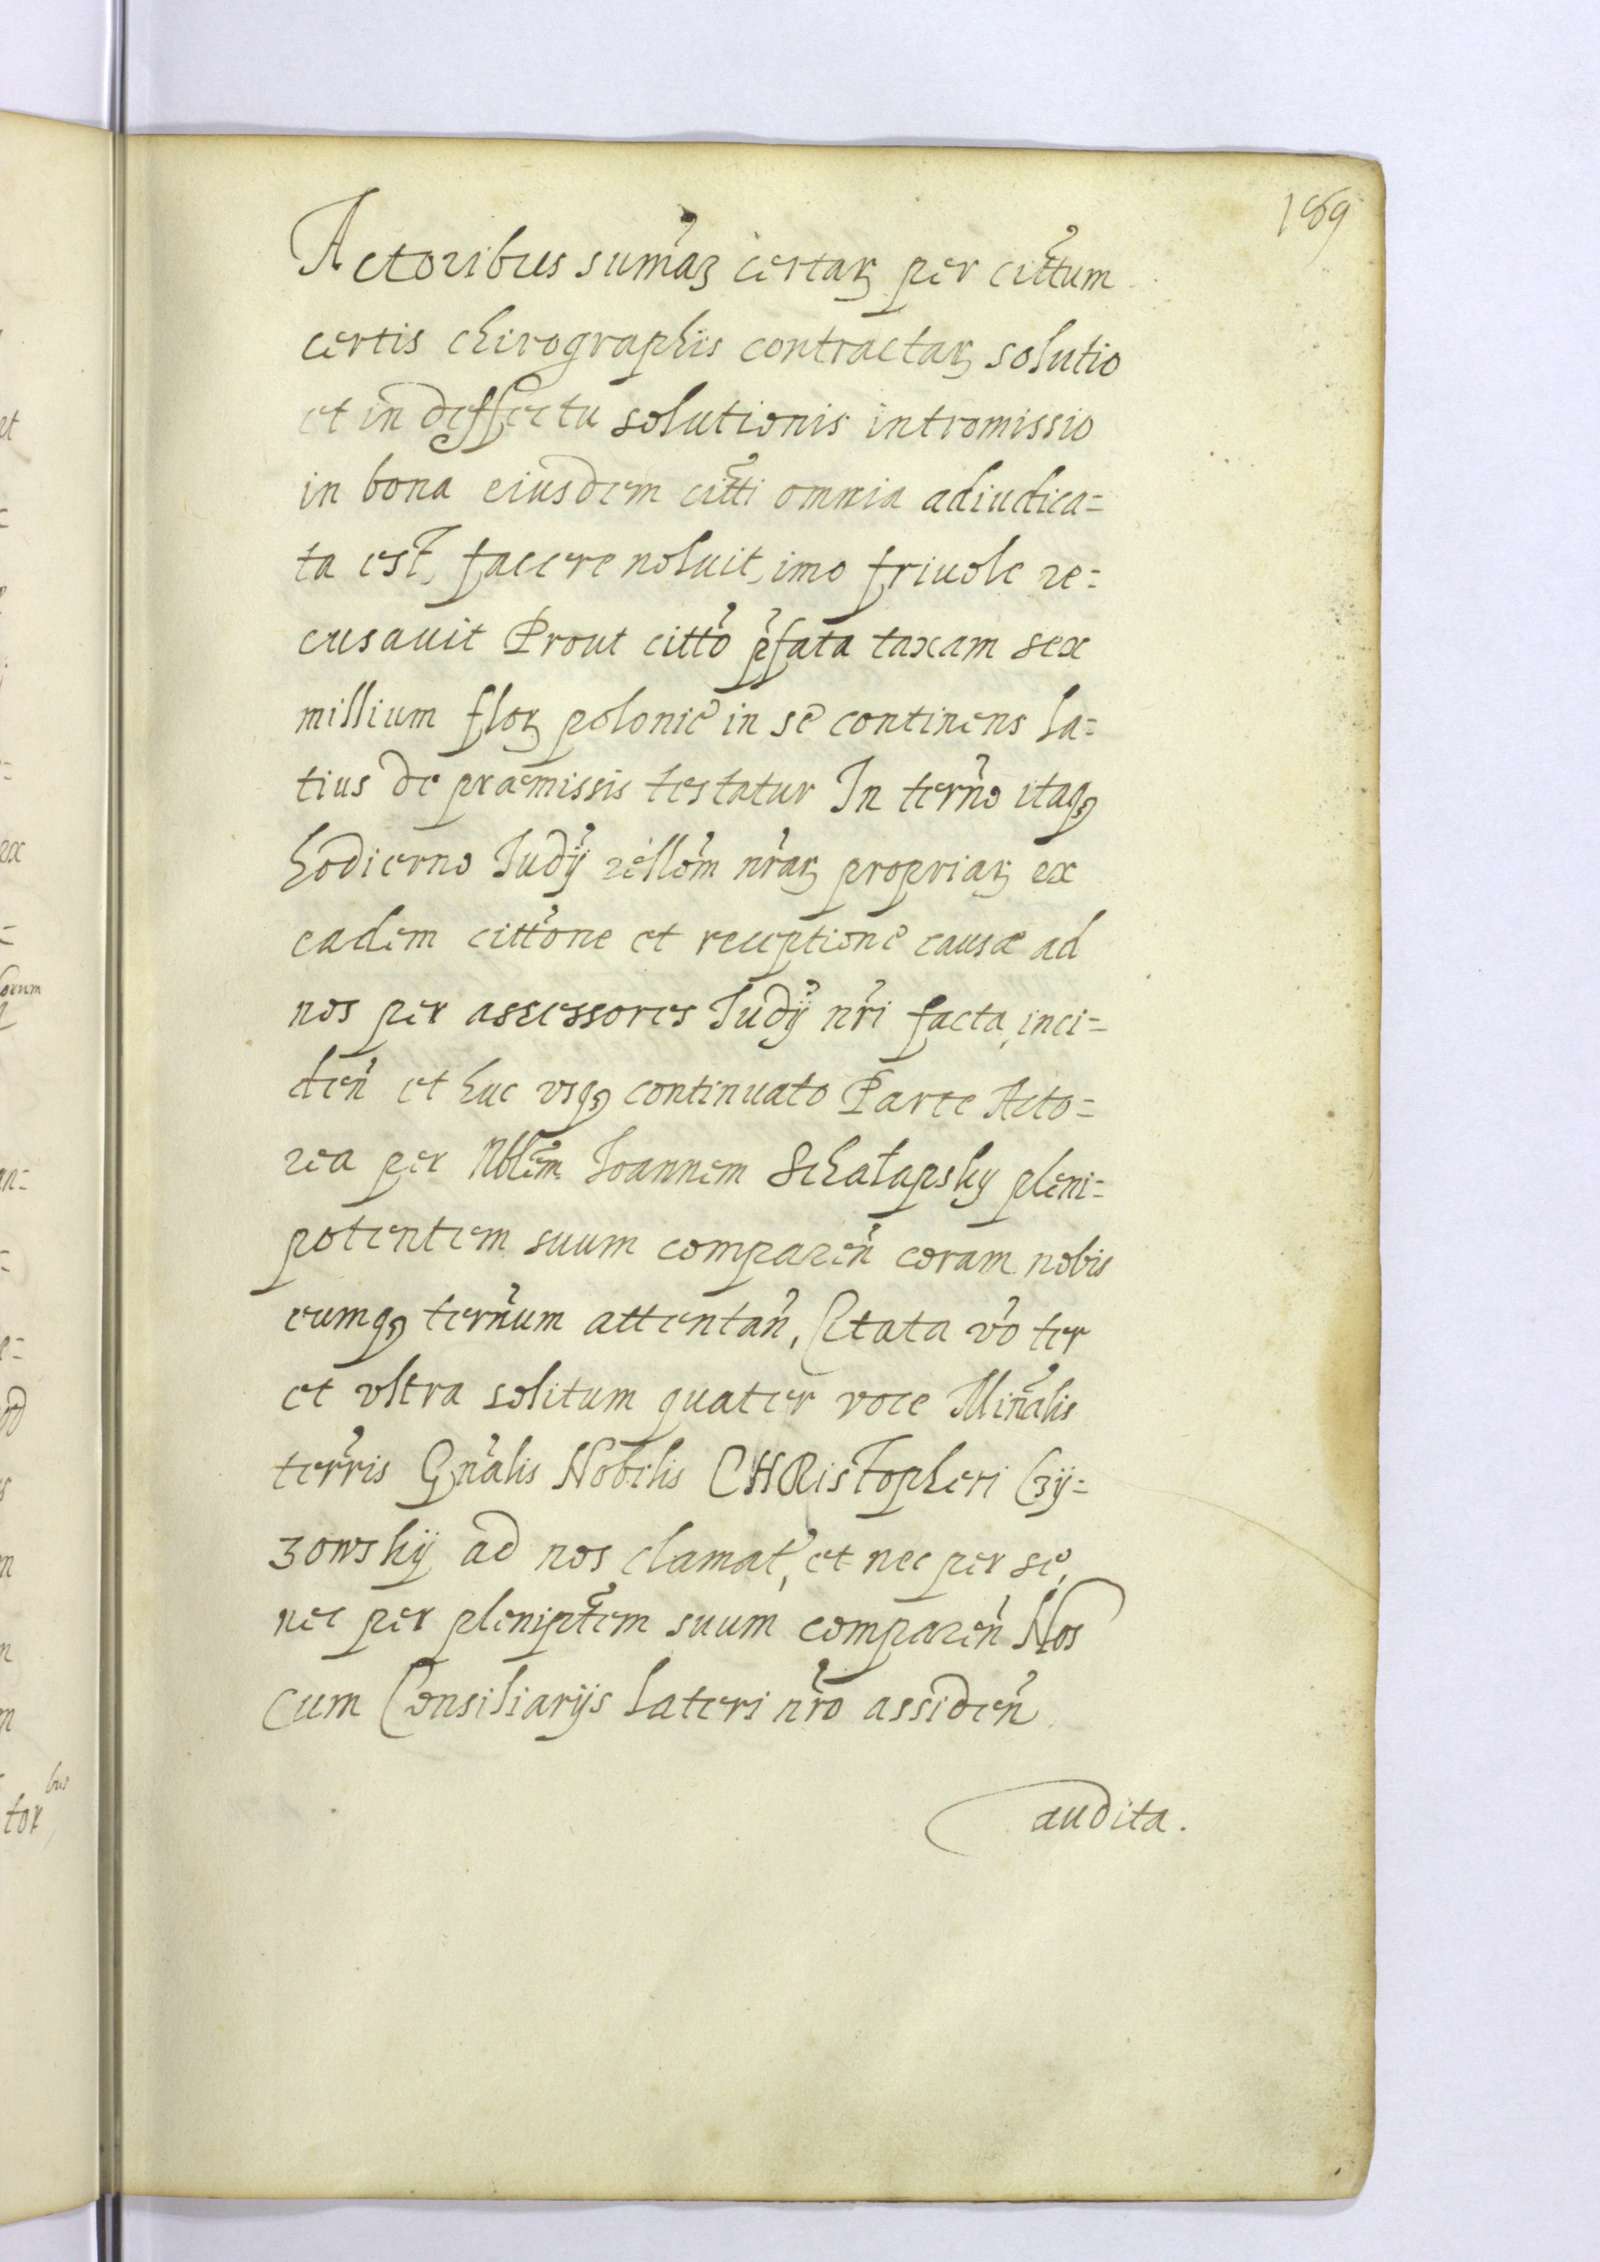 189
Actoribus sum̃aꝝ certaꝝ per cittum
certis chirographis contractaꝝ solutio
et in deffectu solutionis intromissio
in bona eiusdem citti omnia adiudica=
ta est, facere noluit, imo friuole re=
cusauit Prout citto pfata taxam sex
millium floꝝ polonic in se continens la=
tius de præmissis testatur In terno itaqꝫ
hodierno Judÿ rellom nraꝝ propriaꝝ ex
eadem cittone et receptione causæ ad
nos per assessores Judÿ nri facta, inci=
den et huc vsqꝫ continuato Parte Acto=
rea per Nblem Joannem Schalapsky pleni=
potentem suum comparen coram nobis
eumqꝫ ternum attentan, Citata vo ter
et vltra solitum quater voce Minalis
terris Gnalis Nobilis CHRistopheri Czÿ=
zowskÿ ad nos clamat, et nec per se,
nec per pleniptem suum comparen Nos
Cum Consiliarijs lateri nro assiden
audita.